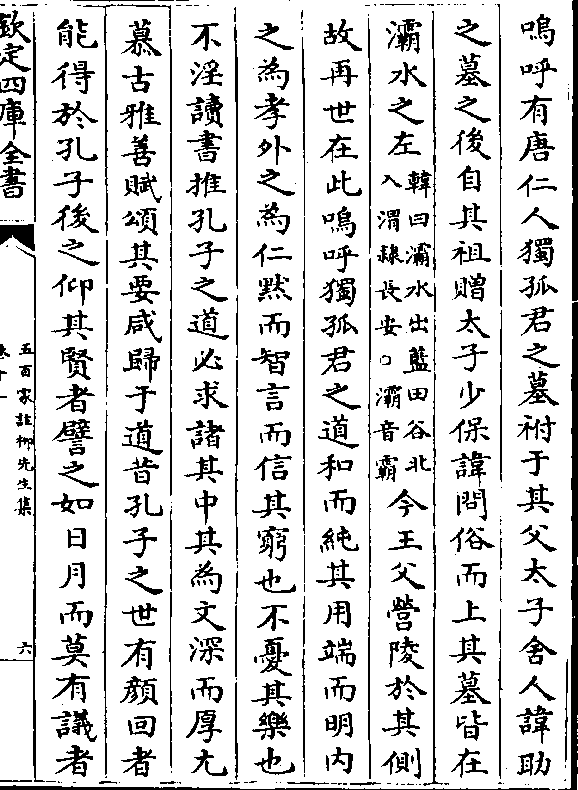 嗚呼有唐仁人獨孤君之墓祔于其父太子舍人諱助
之墓之後自其祖贈太子少保諱問俗而上其墓皆在
灞水之左韓曰灞水出藍田谷北入渭隸長安○灞音霸今王父營陵於其側
故再世在此嗚呼獨孤君之道和而純其用端而明内
之為孝外之為仁默而智言而信其窮也不憂其樂也
不淫讀書推孔子之道必求諸其中其為文深而厚尤
慕古雅善賦頌其要咸歸于道昔孔子之世有顔回者
能得於孔子後之仰其賢者譬之如日月而莫有議者
欽定四庫全書
五百家註柳先生集
六